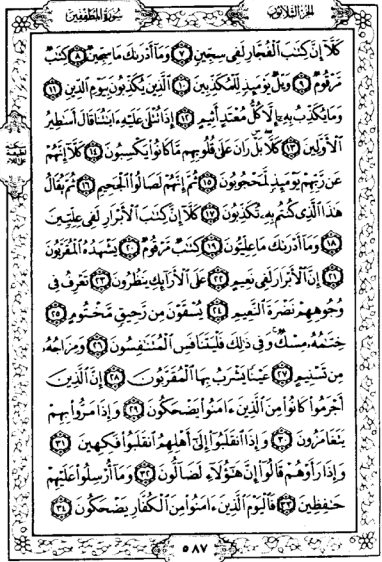 سُورَةُ المُطَفِّفِين الجُزْءُ الثَّلَاثُونَ
كَلَّآ إِنَّ كِتَٰبَ ٱلْفُجَّارِ لَفِى سِجِّينٍ ٧ وَمَآ أَدْرَىٰكَ مَا سِجِّينٌ ٨ كِتَٰبٌ
مَّرْقُومٌ ٩ وَيْلٌ يَوْمَئِذٍ لِّلْمُكَذِّبِينَ ١٠ ٱلَّذِينَ يُكَذِّبُونَ بِيَوْمِ ٱلدِّينِ ١١
وَمَا يُكَذِّبُ بِهِۦٓ إِلَّا كُلُّ مُعْتَدٍ أَثِيمٍ ١٢ إِذَا تُتْلَىٰ عَلَيْهِ ءَايَٰتُنَا قَالَ أَسَٰطِيرُ
ٱلْأَوَّلِينَ ١٣ كَلَّا ۖ بَلْ ۜ رَانَ عَلَىٰ قُلُوبِهِم مَّا كَانُوا۟ يَكْسِبُونَ ١٤ كَلَّآ إِنَّهُمْ
عَن رَّبِّهِمْ يَوْمَئِذٍ لَّمَحْجُوبُونَ ١٥ ثُمَّ إِنَّهُمْ لَصَالُوا۟ ٱلْجَحِيمِ ١٦ ثُمَّ يُقَالُ
هَٰذَا ٱلَّذِى كُنتُم بِهِۦ تُكَذِّبُونَ ١٧ كَلَّآ إِنَّ كِتَٰبَ ٱلْأَبْرَارِ لَفِى عِلِّيِّينَ
١٨ وَمَآ أَدْرَىٰكَ مَا عِلِّيُّونَ ١٩ كِتَٰبٌ مَّرْقُومٌ ٢٠ يَشْهَدُهُ ٱلْمُقَرَّبُونَ
٢١ إِنَّ ٱلْأَبْرَارَ لَفِى نَعِيمٍ ٢٢ عَلَى ٱلْأَرَآئِكِ يَنظُرُونَ ٢٣ تَعْرِفُ فِى
وُجُوهِهِمْ نَضْرَةَ ٱلنَّعِيمِ ٢٤ يُسْقَوْنَ مِن رَّحِيقٍ مَّخْتُومٍ ٢٥
خِتَٰمُهُۥ مِسْكٌ ۚ وَفِى ذَٰلِكَ فَلْيَتَنَافَسِ ٱلْمُتَنَٰفِسُونَ ٢٦ وَمِزَاجُهُۥ
مِن تَسْنِيمٍ ٢٧ عَيْنًا يَشْرَبُ بِهَا ٱلْمُقَرَّبُونَ ٢٨ إِنَّ ٱلَّذِينَ
أَجْرَمُوا۟ كَانُوا۟ مِنَ ٱلَّذِينَ ءَامَنُوا۟ يَضْحَكُونَ ٢٩ وَإِذَا مَرُّوا۟ بِهِمْ
يَتَغَامَزُونَ ٣٠ وَإِذَا ٱنقَلَبُوٓا۟ إِلَىٰٓ أَهْلِهِمُ ٱنقَلَبُوا۟ فَكِهِينَ ٣١
وَإِذَا رَأَوْهُمْ قَالُوٓا۟ إِنَّ هَٰٓؤُلَآءِ لَضَآلُّونَ ٣٢ وَمَآ أُرْسِلُوا۟ عَلَيْهِمْ
حَٰفِظِينَ ٣٣ فَٱلْيَوْمَ ٱلَّذِينَ ءَامَنُوا۟ مِنَ ٱلْكُفَّارِ يَضْحَكُونَ ٣٤
٥٨٧